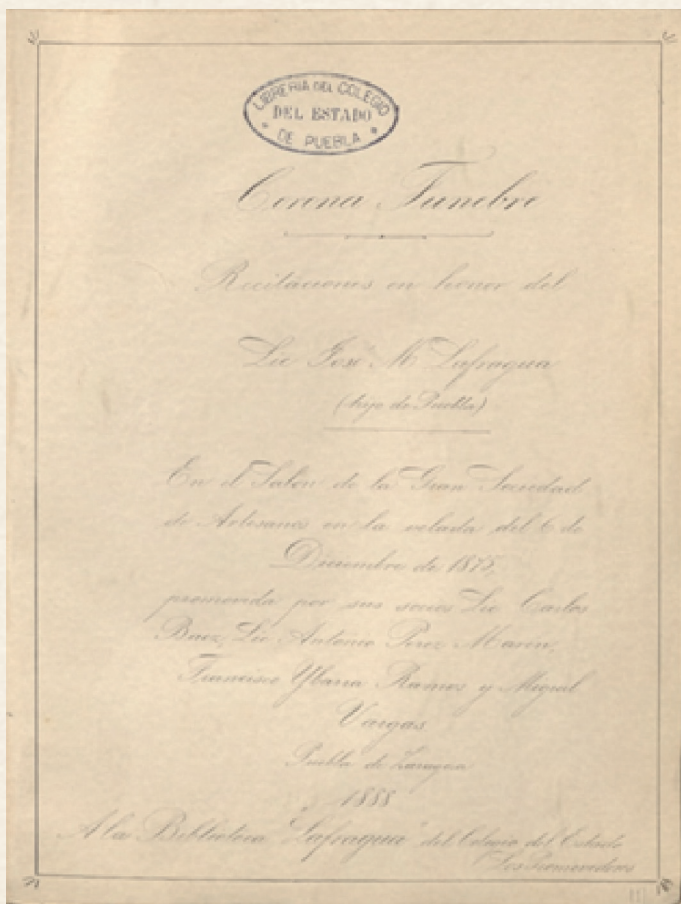 LIBRERIA DEL COLEGIO
DEL ESTADO
DE PUEBLA
Corona Funebre
Recitaciones en honor del
Lic José M Lafragua
(hijo de Puebla)
En el Salón de la Gran Sociedad
de Artesanos en la velada del 6 de
Diciembre de 1875,
promovida por sus socios Lic Carlos
Baez, Lic Antonio Perez Marin,
Francisco Ybarra Ramos y Miguel
Vargas
Puebla de Zaragoza
1888
A la Biblioteca "Lafragua" del Colegio del Estado
Los Promovedores